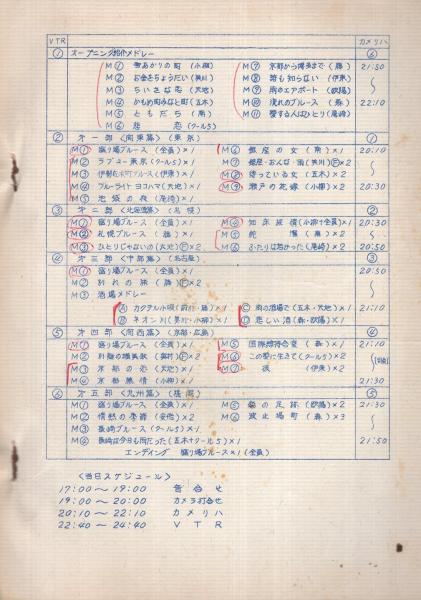 VTR カメリハ
① オープニング新作メドレー ⑥
M① 雪あかりの町 (小柳) M⑦ 京都から博多まで (藤) 21:50
M② お金をちょうだい (美川) M⑧ 誰も知らない (伊東) 〜
M③ ちいさな恋 (天地) M⑨ 雨のエアポート (欧陽)
M④ かもめ町みなと町 (五木) M⑩ 流れのブルース (森) 22:10
M⑤ ともだち (南) M⑪ 愛する人はひとり (尾崎)
M⑥ 悲恋 (クール5)
② 第一部 〈関東篇〉 (東京) ①
M① 盛り場ブルース (全員) ×1 M⑥ 銀座の女 (南) ×1 20:10
M② ラブユー東京 (クール5) ×1 M⑦ 銀座・おんな・雨 (美川) Ⓕ×2 〜
M③ 伊勢佐木町ブルース (伊東) ×1 M⑧ 待っている女 (五木) ×2
M④ ブルーライトヨコハマ (天地) ×1 M⑨ 瀬戸の花嫁 (小柳) ×2 20:30
M⑤ 池袋の夜 (尾崎) ×1
③ 第二部 〈北海道篇〉 (札幌) ②
M① 盛り場ブルース (全員) ×1 M④ 知床旅情 (小柳+全員) ×1 20:30
M② 札幌ブルース (藤) ×1 M⑤ (森) ×2 〜
M③ ひとりじゃないの (天地) Ⓕ×2 M⑥ ふたりは若かった (尾崎) ×2 20:50
④ 第三部 〈中部篇〉 (名古屋) ③
M① 盛り場ブルース (全員) ×1 20:50
M② 別れの旅 (藤) Ⓕ×2 〜
M③ 酒場メドレー
Ⓐ カクテル小唄 ×1 Ⓒ 雨の酒場で (五木・天地) ×1 21:10
Ⓑ ネオン川 (美川・小柳) ×1 Ⓓ 悲しい酒 (森・欧陽) ×1
⑤ 第四部 〈関西篇〉 (京都・広島) ④
M① 盛り場ブルース (全員) ×1 M⑤ (森) ×1 21:10
M② (奥村) Ⓕ×2 M⑥ この愛に生きて (クール5) ×2 〜
M③ 京都の恋 (天地) ×1 M⑦ 涙 (伊東) ×2
M④ 京都慕情 (小柳) ×1 21:30
⑥ 第五部 〈九州篇〉 ⑤
M① 盛り場ブルース (全員) ×1 M⑤ 森の足跡 (欧陽) ×2 21:30
M② 情熱の季節 (安倍) ×2 M⑥ 波止場町 (森) ×3 〜
M③ 長崎ブルース (クール5) ×1
M④ 長崎は今日も雨だった (五木+クール5) ×1 21:50
エンディング 盛り場ブルース×1 (全員)
〈当日スケジュール〉
17:00 〜 19:00 音合せ
19:00 〜 20:00 カメラ打合せ
20:10 〜 22:10 カメリハ
22:40 〜 24:40 VTR